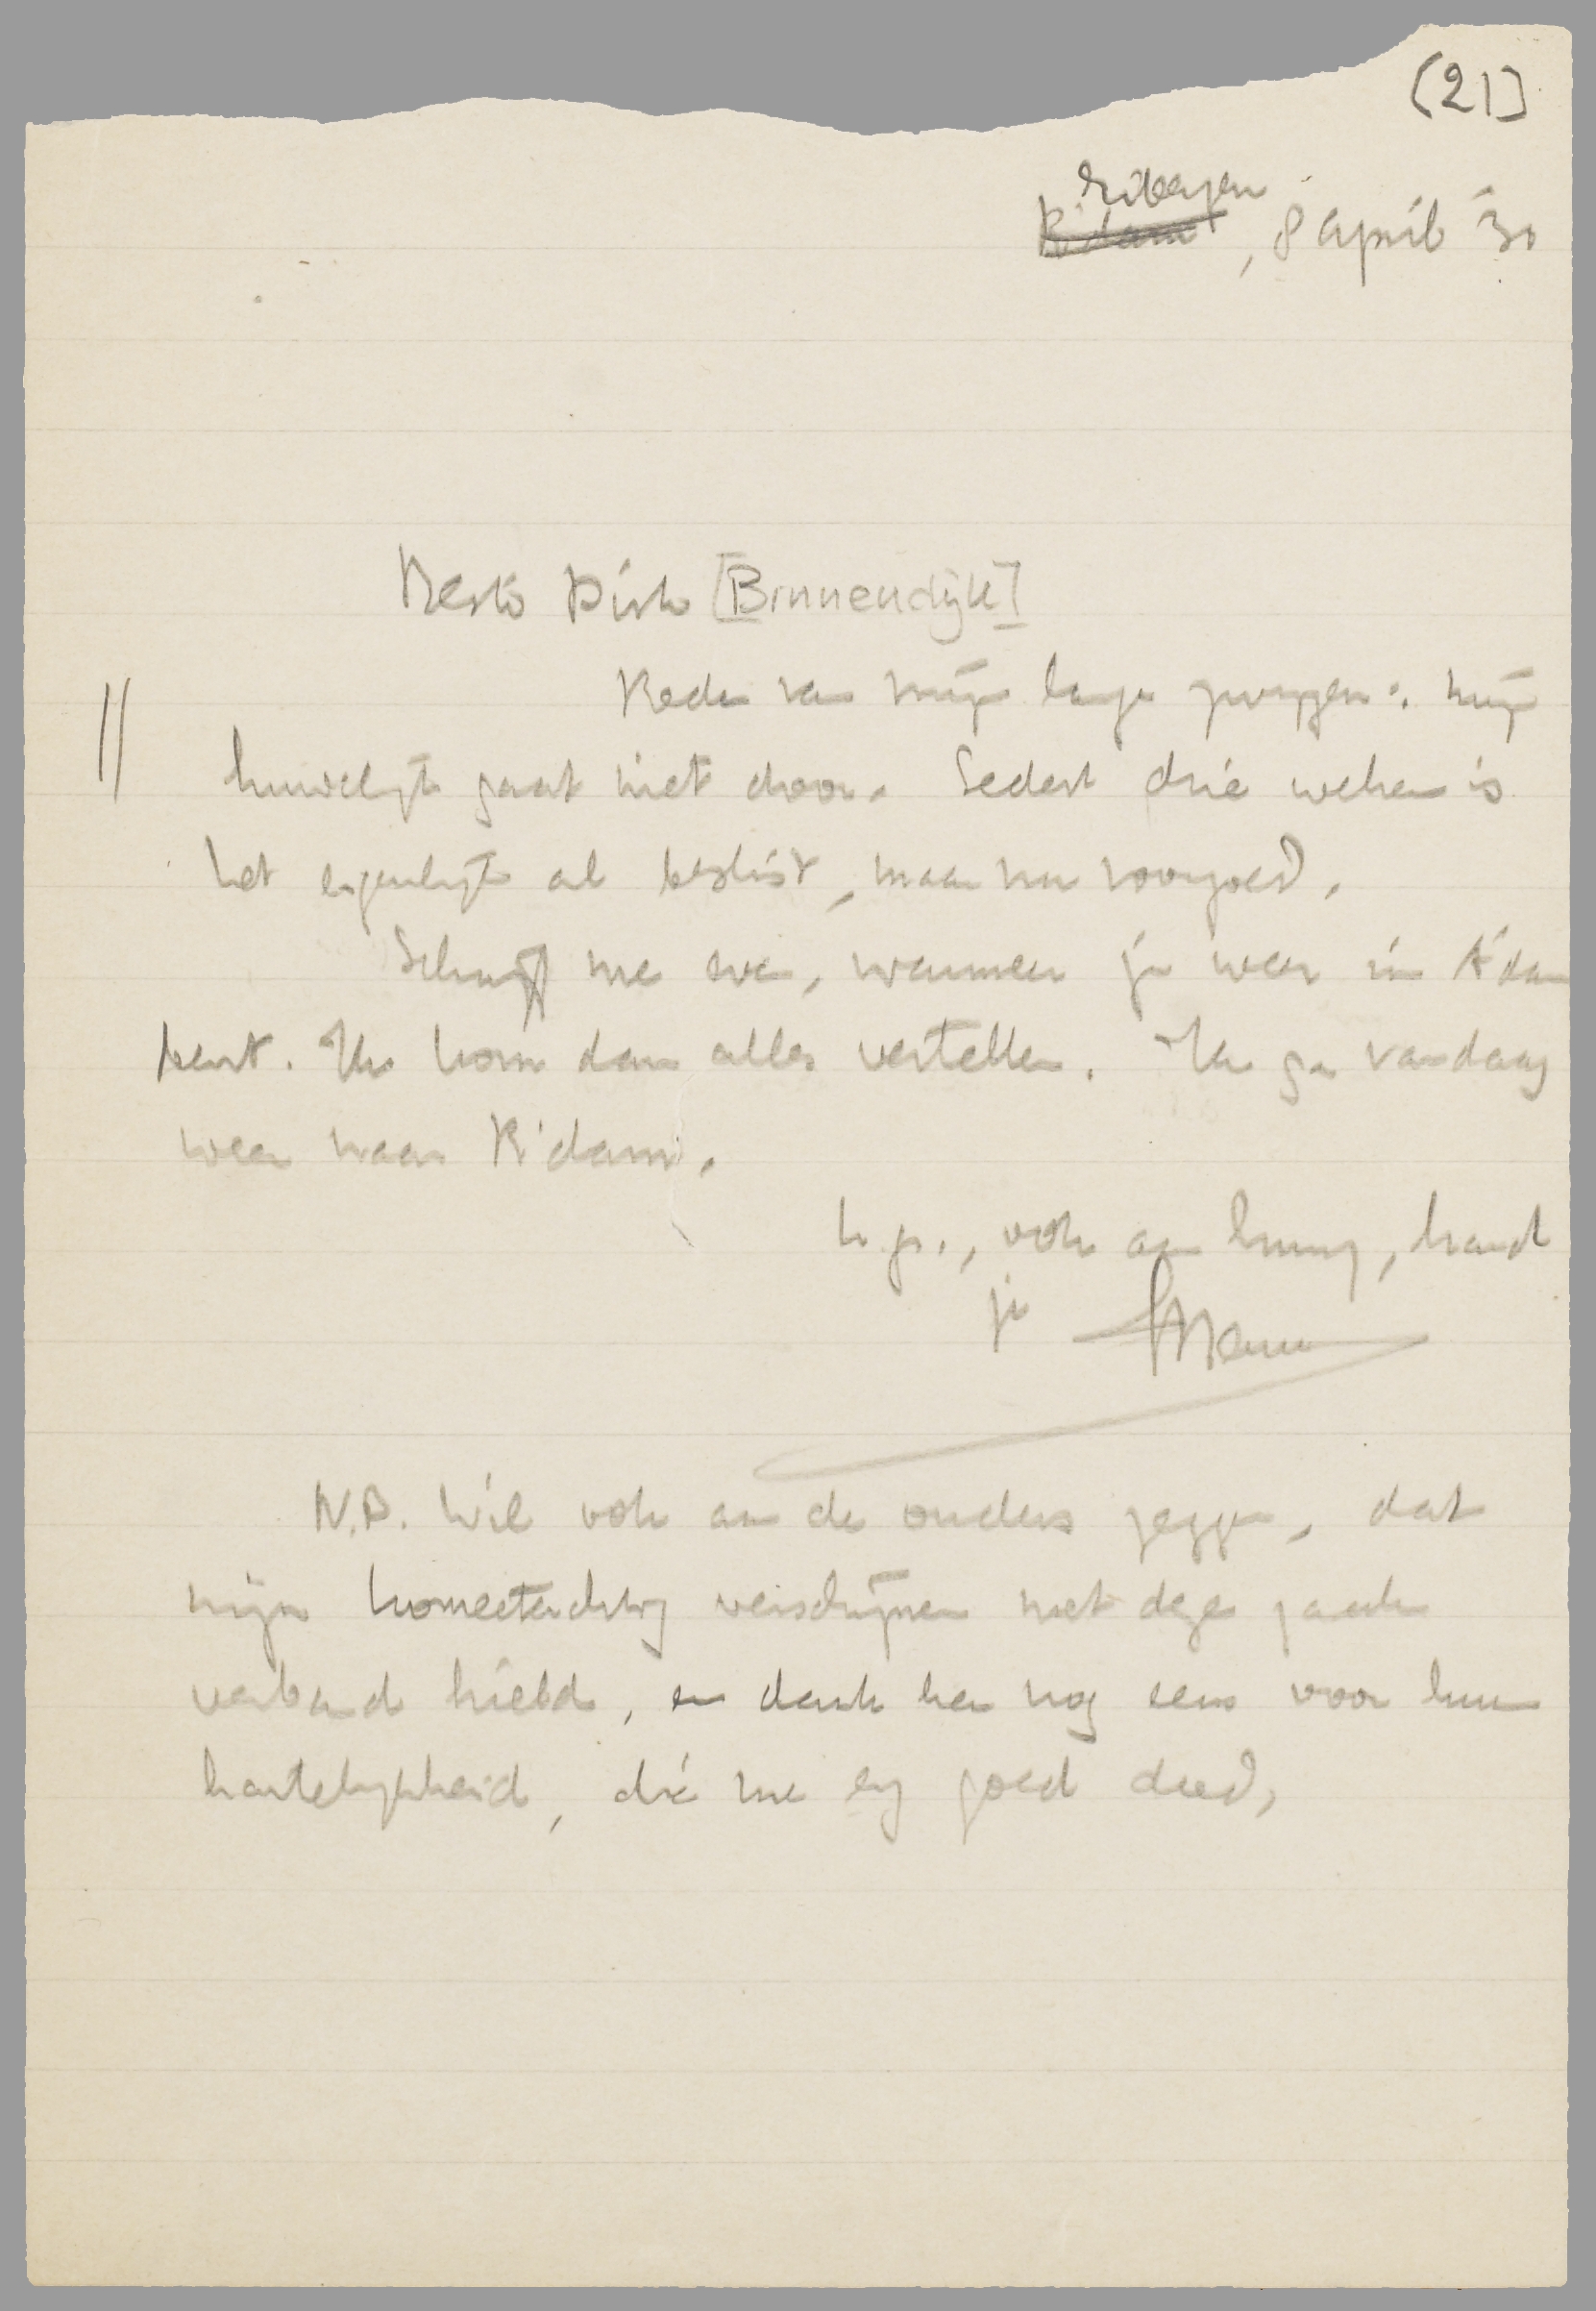 (21]
Eibergen
R'dam, 8 april '30
Beste Dirk [Binnendijk]
Reden van mijn lange zwijgen: mijn
huwelijk gaat niet door. Sedert drie weken is
het eigenlijk al beslist, maar nu voorgoed.
Schrijf me even, wanneer je weer in A'dam
bent. Ik kom dan alles vertellen. Ik ga vandaag
weer naar R'dam.
h.gr., ook aan huize, hand
je Menno
N.B. Wil ook aan de ouders zeggen, dat
mijn komeetachtig verschijnen met deze zaak
verband hield, en dank hen nog eens voor hun
hartelijkheid, die me erg goed deed,